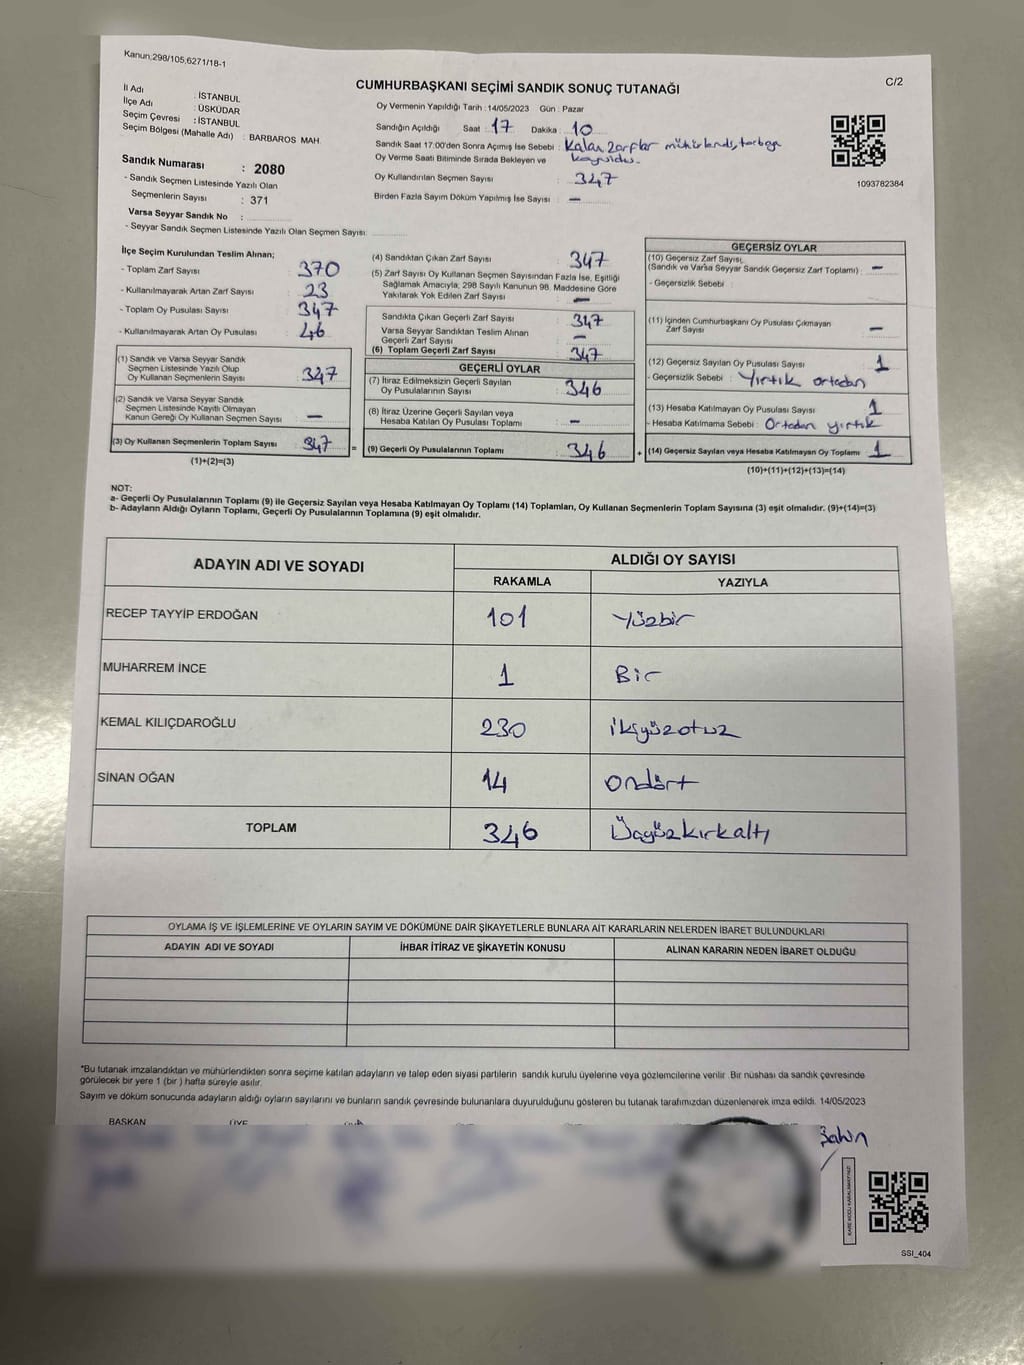 Kanun:298/105,6271/18-1
C/2
CUMHURBAŞKANI SEÇİMİ SANDIK SONUÇ TUTANAĞI
İl Adı : İSTANBUL
İlçe Adı : ÜSKÜDAR
Seçim Çevresi : İSTANBUL
Seçim Bölgesi (Mahalle Adı) : BARBAROS MAH.
Sandık Numarası : 2080
- Sandık Seçmen Listesinde Yazılı Olan
Seçmenlerin Sayısı : 371
Varsa Seyyar Sandık No :
- Seyyar Sandık Seçmen Listesinde Yazılı Olan Seçmen Sayısı:
Oy Vermenin Yapıldığı Tarih : 14/05/2023 Gün : Pazar
Sandığın Açıldığı Saat : 17 Dakika : 10
Sandık Saat 17:00'den Sonra Açımış İse Sebebi : Kalan zarflar mühürlendi, torbaya
Oy Verme Saati Bitiminde Sırada Bekleyen ve koyuldu.
Oy Kullandırılan Seçmen Sayısı : 347
Birden Fazla Sayım Döküm Yapılmış İse Sayısı : —
1093782384
İlçe Seçim Kurulundan Teslim Alınan;
- Toplam Zarf Sayısı : 370
- Kullanılmayarak Artan Zarf Sayısı : 23
- Toplam Oy Pusulası Sayısı : 347
- Kullanılmayarak Artan Oy Pusulası : 46
(1) Sandık ve Varsa Seyyar Sandık
Seçmen Listesinde Yazılı Olup
Oy Kullanan Seçmenlerin Sayısı : 347
(2) Sandık ve Varsa Seyyar Sandık
Seçmen Listesinde Kayıtlı Olmayan
Kanun Gereği Oy Kullanan Seçmen Sayısı : —
(3) Oy Kullanan Seçmenlerin Toplam Sayısı : 347 =
(1)+(2)=(3)
(4) Sandıktan Çıkan Zarf Sayısı : 347
(5) Zarf Sayısı Oy Kullanan Seçmen Sayısından Fazla İse, Eşitliği
Sağlamak Amacıyla, 298 Sayılı Kanunun 98. Maddesine Göre
Yakılarak Yok Edilen Zarf Sayısı : —
Sandıkta Çıkan Geçerli Zarf Sayısı : 347
Varsa Seyyar Sandıktan Teslim Alınan
Geçerli Zarf Sayısı : —
(6) Toplam Geçerli Zarf Sayısı : 347
GEÇERLİ OYLAR
(7) İtiraz Edilmeksizin Geçerli Sayılan
Oy Pusulalarının Sayısı : 346
(8) İtiraz Üzerine Geçerli Sayılan veya
Hesaba Katılan Oy Pusulası Toplamı : —
(9) Geçerli Oy Pusulalarının Toplamı : 346 +
GEÇERSİZ OYLAR
(10) Geçersiz Zarf Sayısı,
(Sandık ve Varsa Seyyar Sandık Geçersiz Zarf Toplamı) : —
- Geçersizlik Sebebi :
(11) İçinden Cumhurbaşkanı Oy Pusulası Çıkmayan
Zarf Sayısı : —
(12) Geçersiz Sayılan Oy Pusulası Sayısı : 1
- Geçersizlik Sebebi : Yırtık ortadan
(13) Hesaba Katılmayan Oy Pusulası Sayısı : 1
- Hesaba Katılmama Sebebi : Ortadan yırtık
(14) Geçersiz Sayılan veya Hesaba Katılmayan Oy Toplamı : 1
(10)+(11)+(12)+(13)=(14)
NOT:
a- Geçerli Oy Pusulalarının Toplamı (9) ile Geçersiz Sayılan veya Hesaba Katılmayan Oy Toplamı (14) Toplamları, Oy Kullanan Seçmenlerin Toplam Sayısına (3) eşit olmalıdır. (9)+(14)=(3)
b- Adayların Aldığı Oyların Toplamı, Geçerli Oy Pusulalarının Toplamına (9) eşit olmalıdır.
ADAYIN ADI VE SOYADI ALDIĞI OY SAYISI
RAKAMLA YAZIYLA
RECEP TAYYİP ERDOĞAN 101 Yüzbir
MUHARREM İNCE 1 Bir
KEMAL KILIÇDAROĞLU 230 ikiyüzotuz
SİNAN OĞAN 14 Ondört
TOPLAM 346 Üçyüzkırkaltı
OYLAMA İŞ VE İŞLEMLERİNE VE OYLARIN SAYIM VE DÖKÜMÜNE DAİR ŞİKAYETLERLE BUNLARA AİT KARARLARIN NELERDEN İBARET BULUNDUKLARI
ADAYIN ADI VE SOYADI İHBAR İTİRAZ VE ŞİKAYETİN KONUSU ALINAN KARARIN NEDEN İBARET OLDUĞU
*Bu tutanak imzalandıktan ve mühürlendikten sonra seçime katılan adayların ve talep eden siyasi partilerin sandık kurulu üyelerine veya gözlemcilerine verilir. Bir nüshası da sandık çevresinde
görülecek bir yere 1 (bir ) hafta süreyle asılır.
Sayım ve döküm sonucunda adayların aldığı oyların sayılarını ve bunların sandık çevresinde bulunanlara duyurulduğunu gösteren bu tutanak tarafımızdan düzenlenerek imza edildi. 14/05/2023
BAŞKAN ÜYE
Şahin
SSI_404